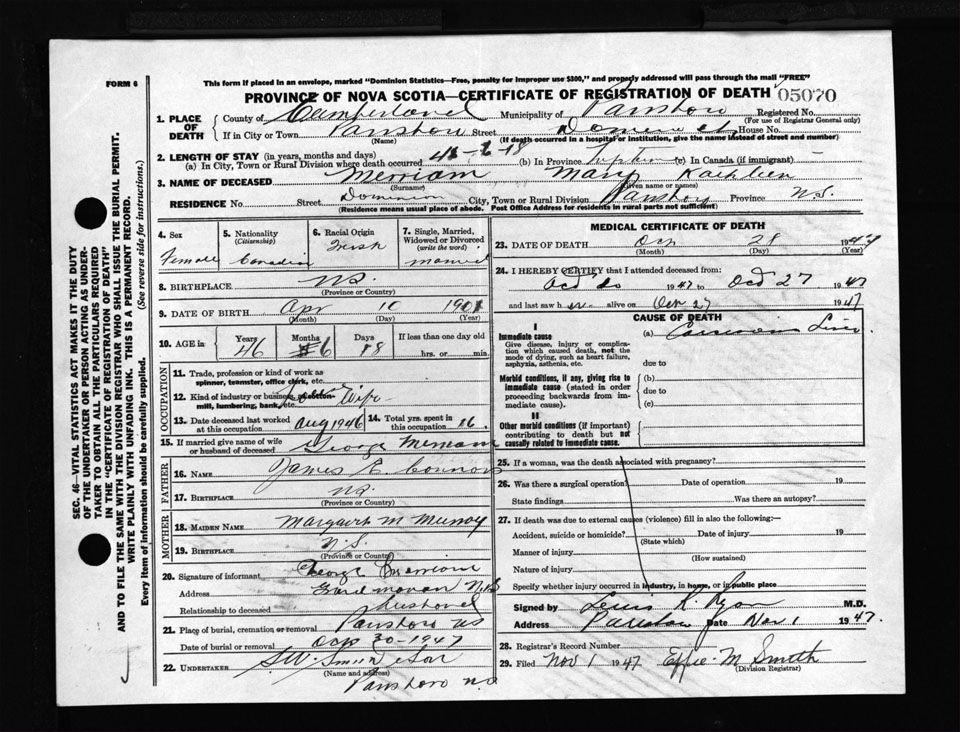 FORM 6
This form if placed in an envelope, marked "Dominion Statistics—Free, penalty for improper use $300," and properly addressed will pass through the mail "FREE"
PROVINCE OF NOVA SCOTIA—CERTIFICATE OF REGISTRATION OF DEATH 05070
1. PLACE OF DEATH County of Cumberland Municipality of Parrsboro Registered No.
(For use of Registrar General only)
If in City or Town Parrsboro Street House No.
(Name) (If death occurred in a hospital or institution, give the name instead of street and number)
2. LENGTH OF STAY (in years, months and days)
(a) In City, Town or Rural Division where death occurred 46-6-18 (b) In Province (c) In Canada (if immigrant) —
3. NAME OF DECEASED Merriam Mary Kathleen
(Surname) (Given name or names)
RESIDENCE No. Street Dominion City, Town or Rural Division Parrsboro Province N.S.
(Residence means usual place of abode. Post Office Address for residents in rural parts not sufficient)
4. Sex Female
5. Nationality (Citizenship) Canadian
6. Racial Origin Irish
7. Single, Married, Widowed or Divorced (write the word) married
8. BIRTHPLACE N.S.
(Province or Country)
9. DATE OF BIRTH Apr 10 1901
(Month) (Day) (Year)
10. AGE in Years 46 Months 6 Days 18 If less than one day old
hrs. or min.
OCCUPATION
11. Trade, profession or kind of work as spinner, teamster, office clerk, etc.
12. Kind of industry or business, as cotton mill, lumbering, bank, etc. House Wife
13. Date deceased last worked at this occupation Aug 1946 14. Total yrs. spent in this occupation 16.
15. If married give name of wife or husband of deceased George Merriam
FATHER
16. NAME James E Connors
17. BIRTHPLACE N.S.
(Province or Country)
MOTHER
18. MAIDEN NAME Margaret M
19. BIRTHPLACE N.S.
(Province or Country)
20. Signature of informant George Merriam
Address N.B
Relationship to deceased Husband
21. Place of burial, cremation or removal Parrsboro NS
Date of burial or removal Oct 30-1947
22. UNDERTAKER Son
(Name and address)
Parrsboro N.S
MEDICAL CERTIFICATE OF DEATH
23. DATE OF DEATH Oct 28 1947
(Month) (Day) (Year)
24. I HEREBY CERTIFY that I attended deceased from:
Oct 20 1947 to Oct 27 1947
and last saw h er alive on Oct 27 1947
CAUSE OF DEATH
I
Immediate cause
Give disease, injury or complication which caused death, not the mode of dying, such as heart failure, asphyxia, asthenia, etc.
(a) Carcinoma Liver
due to
Morbid conditions, if any, giving rise to immediate cause (stated in order proceeding backwards from immediate cause).
(b)
due to
(c)
II
Other morbid conditions (if important) contributing to death but not causally related to immediate cause.
25. If a woman, was the death associated with pregnancy?
26. Was there a surgical operation? Date of operation 19
State findings Was there an autopsy?
27. If death was due to external causes (violence) fill in also the following:—
Accident, suicide or homicide? Date of injury 19
(State which)
Manner of injury
(How sustained)
Nature of injury
Specify whether injury occurred in industry, in home, or in public place
Signed by M.D.
Address Date Nov 1 1947.
28. Registrar's Record Number
29. Filed Nov 1 1947 Effie M Smith
(Division Registrar)
SEC. 46—VITAL STATISTICS ACT MAKES IT THE DUTY
OF THE UNDERTAKER OR PERSON ACTING AS UNDERTAKER TO OBTAIN ALL THE PARTICULARS REQUIRED
IN THE "CERTIFICATE OF REGISTRATION OF DEATH"
AND TO FILE THE SAME WITH THE DIVISION REGISTRAR WHO SHALL ISSUE THE BURIAL PERMIT.
WRITE PLAINLY WITH UNFADING INK. THIS IS A PERMANENT RECORD.
Every item of Information should be carefully supplied. (See reverse side for instructions.)